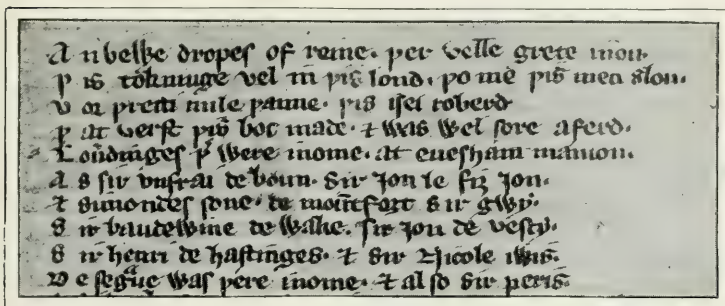 A n velwe dropes of reine. þer velle grete inou.
Þ is tokninge vel in þis lond. þo me þis men slou.
V or þretti mile þanne. þis isei roberd
Þ at verst þis boc made. ⁊ was wel sore aferd.
L ouerdinges þ were inome. at euesham manion.
A s sir vnfrai de boun. Sir Ion le fiz Ion.
⁊ simondes sone. de mōtfort Sir gwy.
S ir baudewine de wake. sir Ion de vescy.
S ir henri de hastinges. ⁊ Sir Nicole iwis.
D e segᵃue was þere inome. ⁊ al so Sir peris.